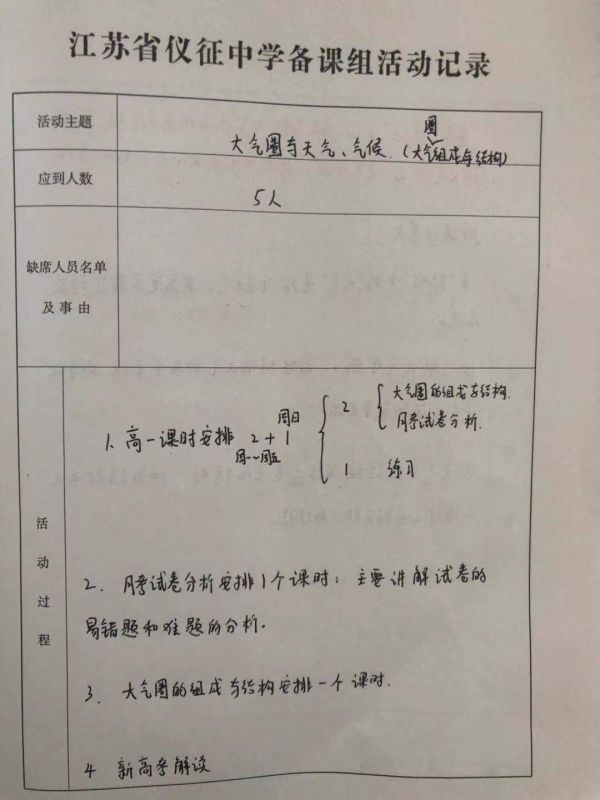 江苏省仪征中学备课组活动记录
活动主题
圈
大气圈与天气、气候.（大气组成与结构）
应到人数
5人
缺席人员名单
及事由
大气圈的组成与结构.
周日
2
月考试卷分析.
1、高一课时安排 2+1
周一~周五
1 练习
活动过程
2. 月考试卷分析安排1个课时；主要讲解试卷的
易错题和难题的分析.
3. 大气圈的组成与结构安排一个课时.
4 新高考解读